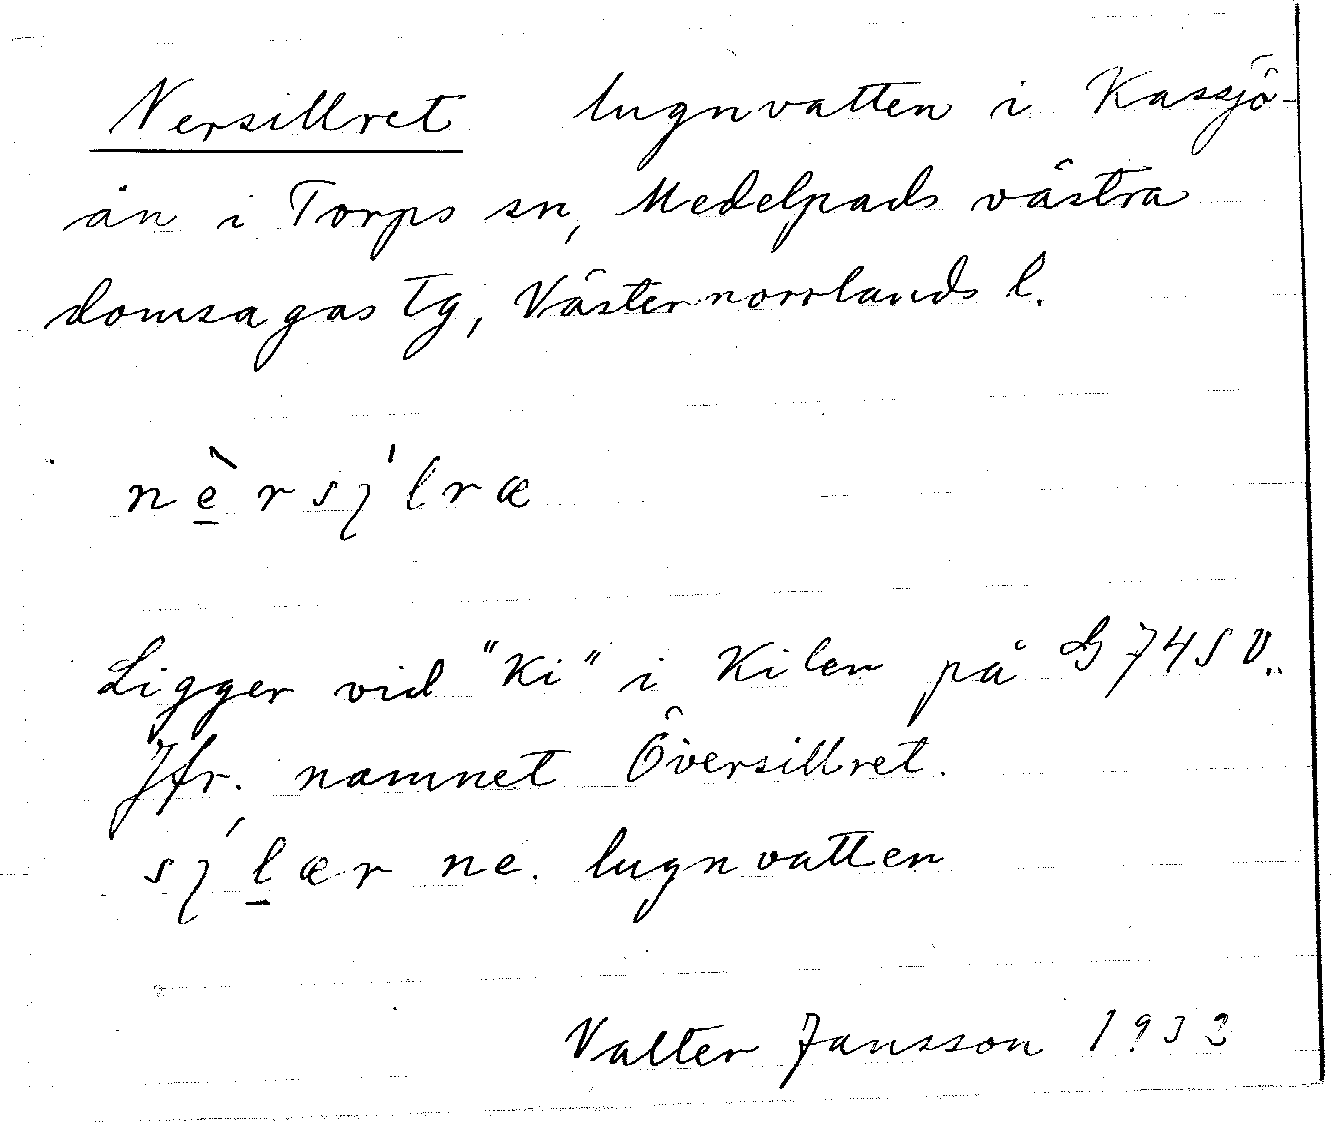 Nersillret lugnvatten i Kassjö-
ån i Torps sn, Medelpads västra
domsagas tg, Västernorrlands l.
nè̱rsı̨́lræ
Ligger vid "Ki" i Kilen på G 74 S V..
Jfr. namnet Översillret.
sı̨́ḻær ne. lugnvatten
Valter Jansson 1933